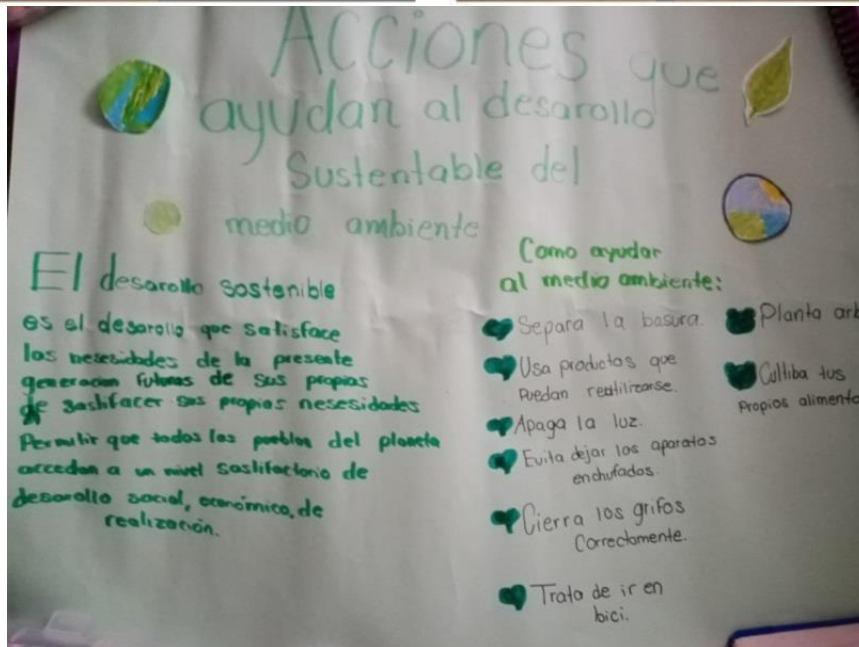 Acciones que
ayudan al desarollo
Sustentable del
medio ambiente
El desarollo sostenible
es el desarollo que satisface
las nesesidades de la presente
generacion futuras de sus propias
de sastifacer sus propias nesesidades
Permitir que todos los pueblos del planeta
accedan a un nivel sastifactorio de
desarollo social, económico, de
realización.
Como ayudar
al medio ambiente:
Separa la basura.
Usa productos que
Puedan reutilizarse.
Apaga la luz.
Evita dejar los aparatos
enchufados.
Cierra los grifos
Correctamente.
Trata de ir en
bici.
Planta
Cultiba tus
Propios